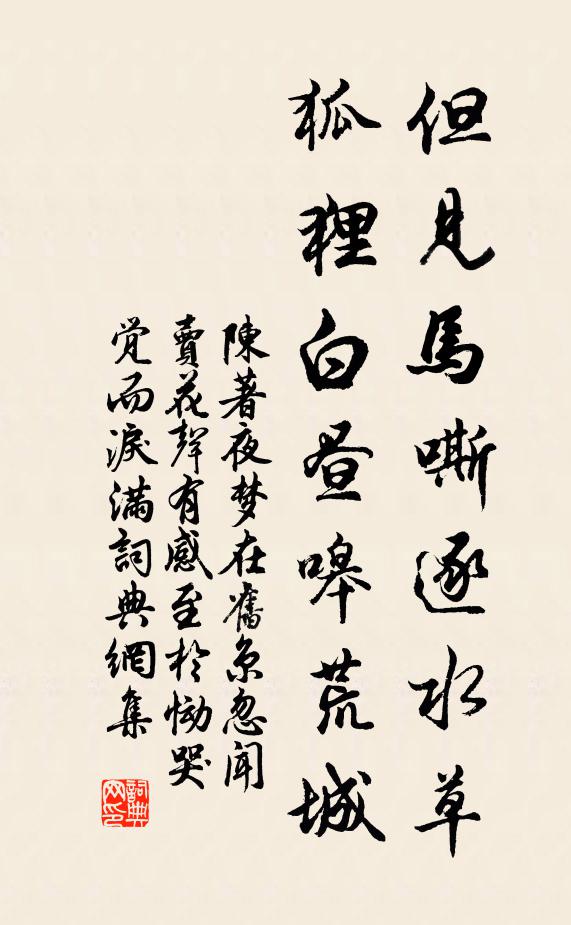 但見馬嘶逐水草
狐狸白昼嗥荒城
陳著夜梦在舊京忽聞
賣花聲有感至於恸哭
觉而淚满詞典網集
詞典
网印